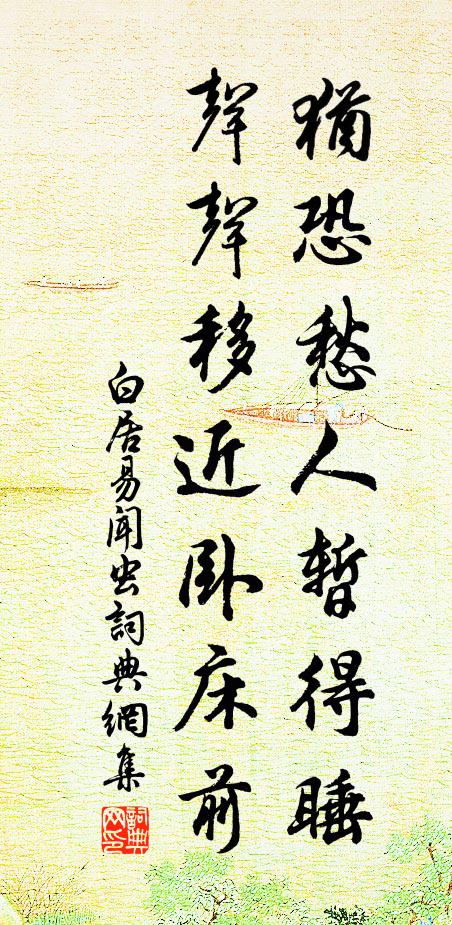 猶恐愁人暫得睡
聲聲移近卧床前
白居易聞虫詞典網集
詞典
网印